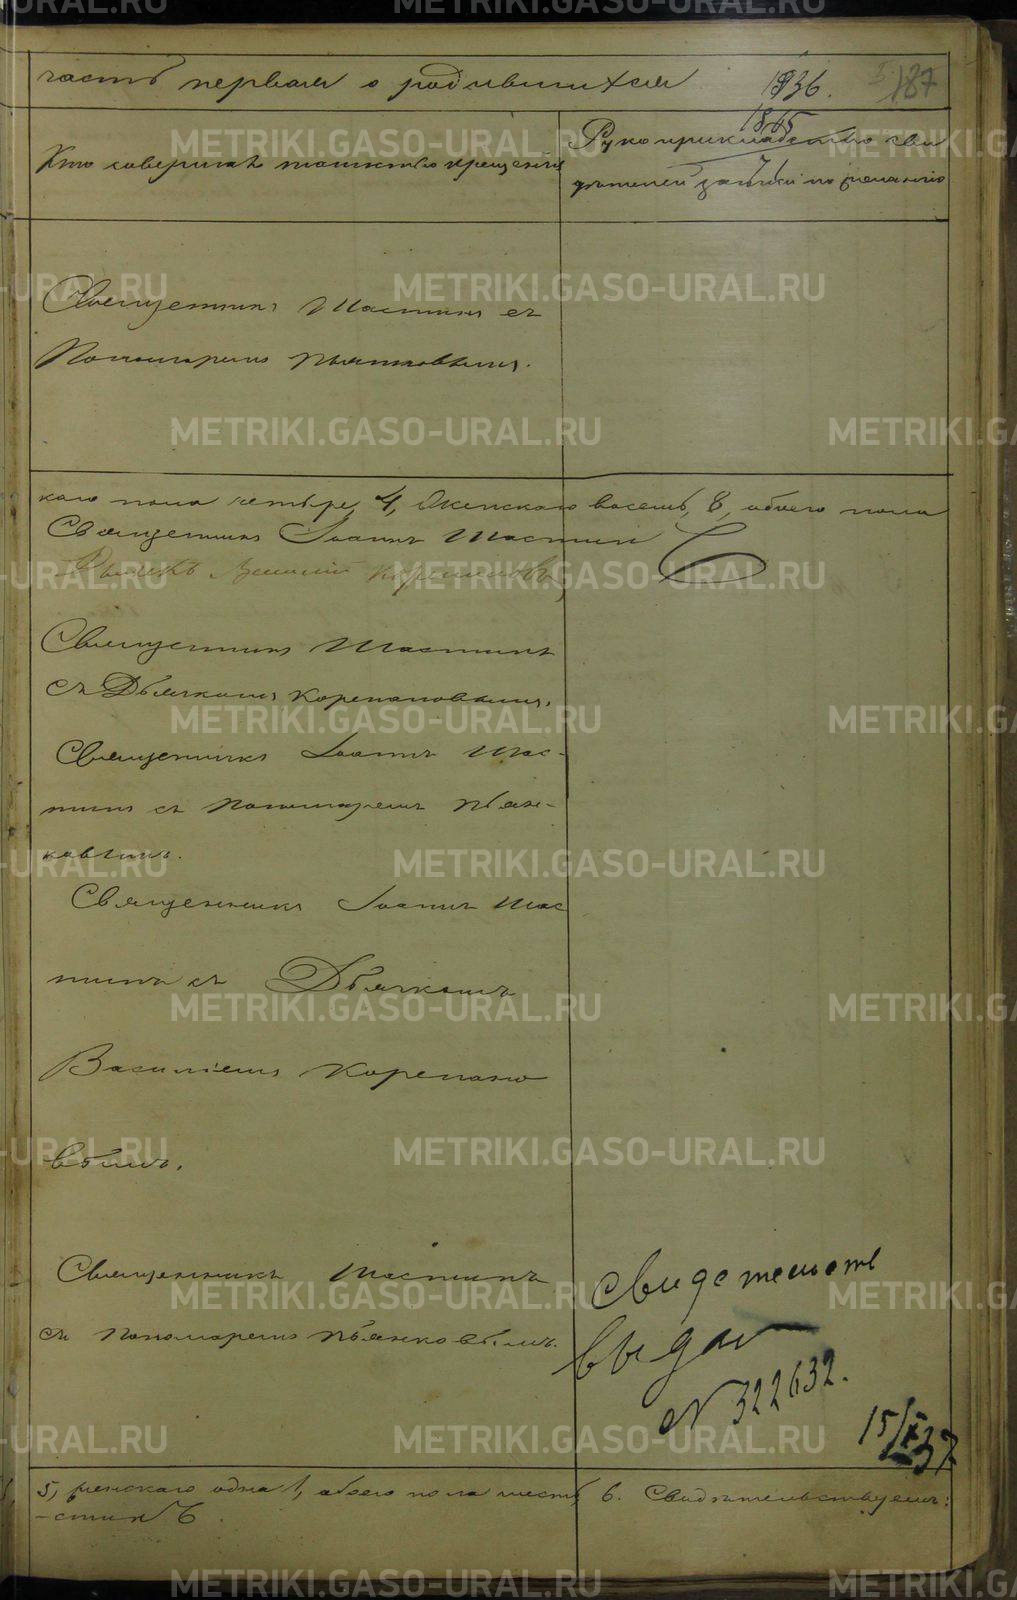 часть первая о родившихся 1836. 187
1865
Кто совершалъ таинство крещенія
Рукоприкладство сви
дѣтелей записи по желанію
Священникъ Шастинъ съ
Пономаремъ Пьянковымъ.
каго пола четыре, 4, Женскаго восемь, 8, обоего пола
Священникъ Іоаннъ Шастин
Дьячекъ Василий Корепановъ
Священникъ Шастинъ
съ Дьячкомъ Корепановымъ.
Священникъ Іоаннъ Шас-
тинъ съ Пономаремъ Пьян-
ковымъ.
Священникъ Іоаннъ Шас
тинъ съ Дьячкомъ
Василіемъ Корепано
вымъ.
Священникъ Шастинъ
съ Пономаремъ Пьянковымъ.
Свидетельств
выдан
№ 322632.
15/X 37
5, женскаго одна 1, обоего пола шесть 6. Свидѣтельствуемъ:
-стин
METRIKI.GASO-URAL.RU